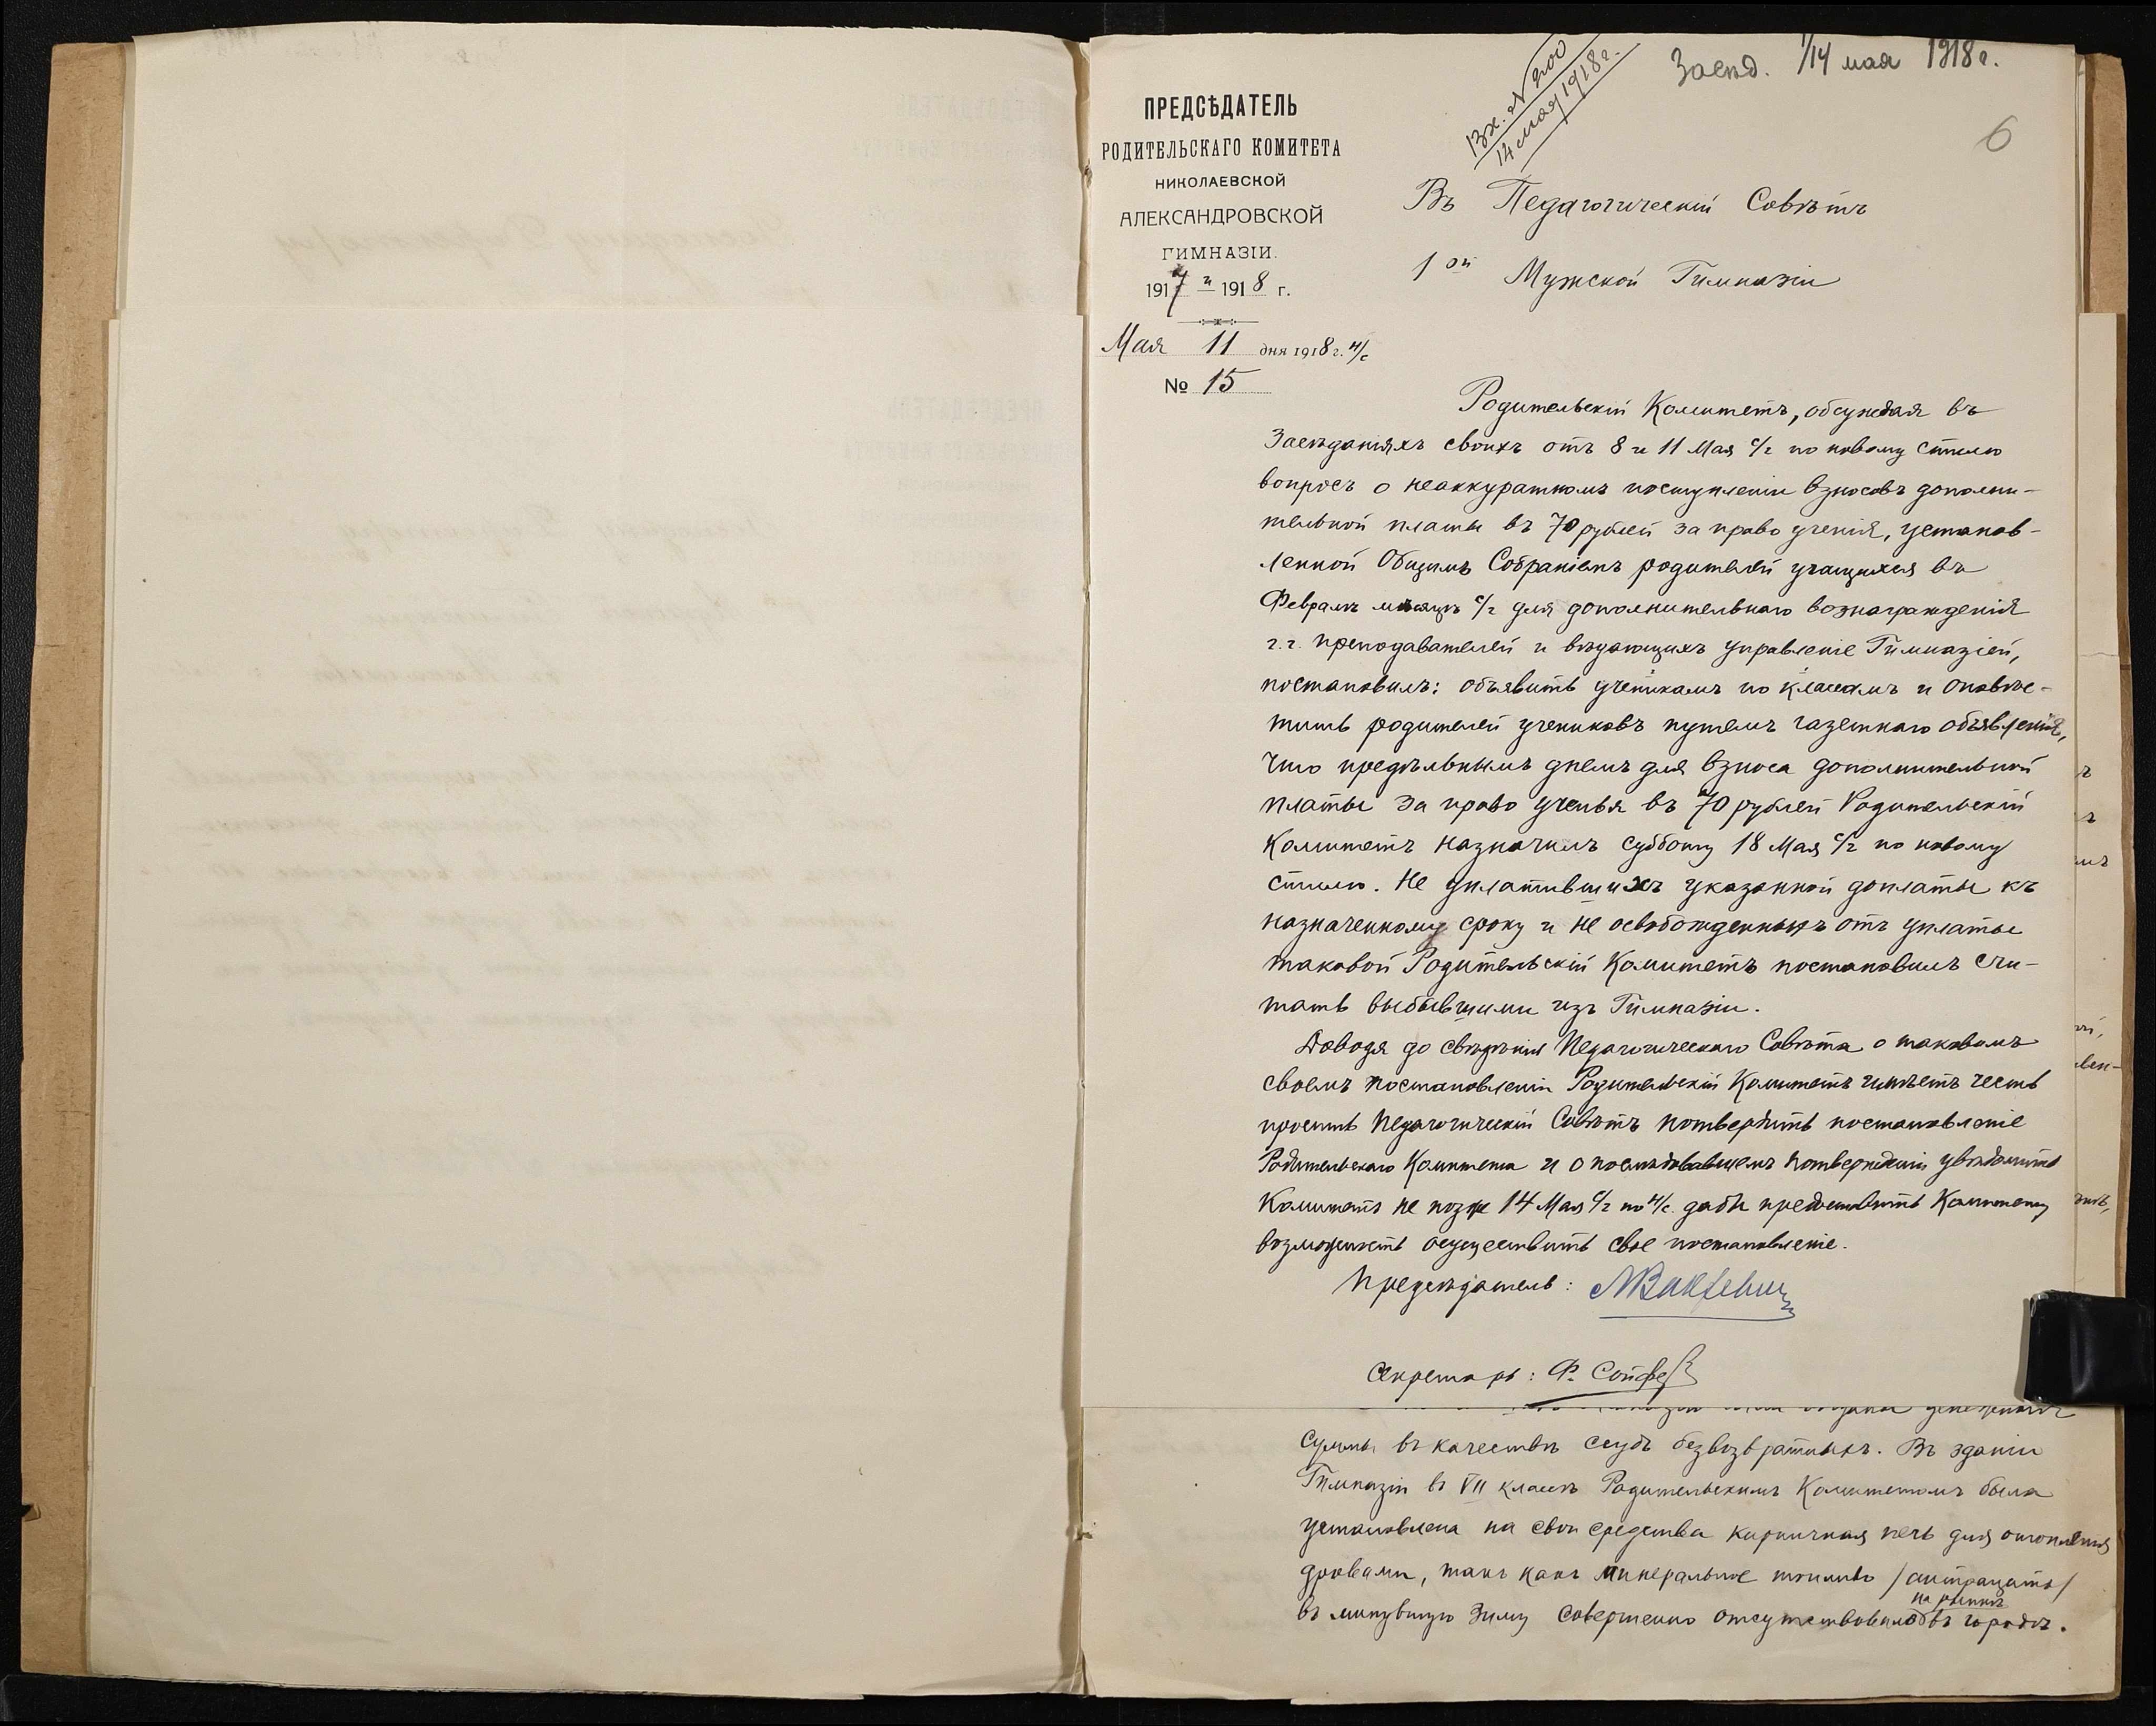 Засѣд. 1/14 мая 1918 г.
Вх. № 200
14 мая 1918 г.
6
ПРЕДСѢДАТЕЛЬ
РОДИТЕЛЬСКАГО КОМИТЕТА
НИКОЛАЕВСКОЙ
АЛЕКСАНДРОВСКОЙ
ГИМНАЗІИ.
1917 и 1918 г.
Мая 11 дня 1918 г. н/с
№ 15
Въ Педагогическій Совѣтъ
1ой Мужской Гимназіи
Родительскій Комитетъ, обсуждая въ
Засѣданіяхъ своихъ отъ 8 и 11 Мая с/г по новому стилю
вопросъ о неаккуратномъ поступленіи взносовъ дополни-
тельной платы въ 70 рублей за право ученія, установ-
ленной Общимъ Собраніемъ родителей учащихся въ
Февралѣ мѣсяцѣ с/г для дополнительнаго вознагражденія
г.г. преподавателей и вѣдающихъ управленіе Гимназіей,
постановилъ: объявить ученикамъ по классамъ и оповѣс-
тить родителей учениковъ путемъ газетнаго объявленія,
что предѣльнымъ днемъ для взноса дополнительной
платы за право ученья въ 70 рублей Родительскій
Комитетъ назначилъ субботу 18 Мая с/г по новому
стилю. Не уплатившихъ указанной доплаты къ
назначенному сроку и не освобожденныхъ отъ уплаты
таковой Родительскій Комитетъ постановилъ счи-
тать выбывшими изъ Гимназіи.
Доводя до свѣдѣнія Педагогическаго Совѣта о таковомъ
своемъ постановленіи Родительскій Комитетъ имѣетъ честь
просить Педагогическій Совѣтъ потвердить постановленіе
Родительскаго Комитета и о послѣдовавшемъ потвержденіи увѣдомить
Комитетъ не позже 14 Мая с/г по н/с. дабы предоставить Комитету
возможность осуществить свое постановленіе.
Предсѣдатель:
Секретарь: Ф.
суммы въ качествѣ ссудъ безвозвратныхъ. Въ зданіи
Гимназіи въ VII классѣ Родительскимъ Комитетомъ была
установлена на свои средства кирпичная печь для отопленія
дровами, такъ какъ минеральное топливо /антрацитъ/
на рынкѣ
въ минувшую зиму совершенно отсутствовало въ городѣ.